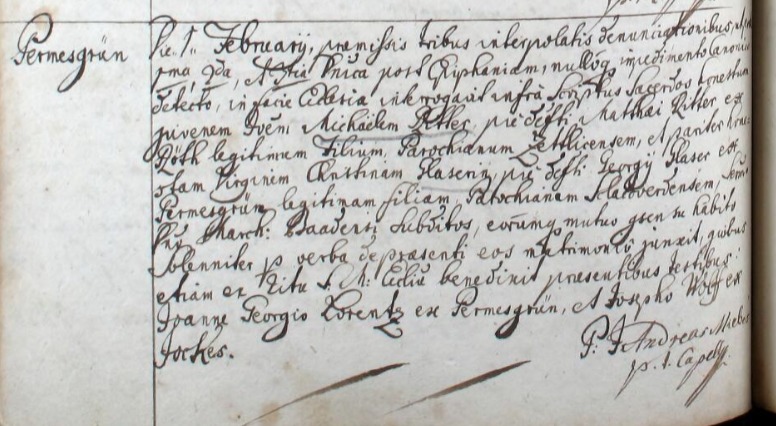 Permesgrün
Die 1. Februarij, præmissis tribus interpolatis denunciationibus,
1ma, 2da, et 3tia Dnica post Epiphaniam, nulloq impedimento Canonico
detecto, in facie Ecclesiæ interrogavit infra Scriptus Sacerdos honestum
juvenem Joem Michaelem Ritter, pie defti Matthæi Ritter ex
Röth legitimum Filium, Parochianum Zettlicensem, et pariter hone-
stam Virginem Christinam Glaserin, pie defti Georgij Glaser ex
Permesgrün legitimam filiam, Parochianam Schlacoverdensem,
March: Baadensi Subditos, eorumq mutuo gsensu habito
Solenniter p verba de præsenti eos matrimonio junxit, quibus
etiam ex Ritu S. M: Ecclæ benedixit præsentibus testibus:
Joanne Georgio Lorentz ex Permesgrün, et Josepho Wolff ex
Jockes.
P: J Andreas
p. t. Capell: